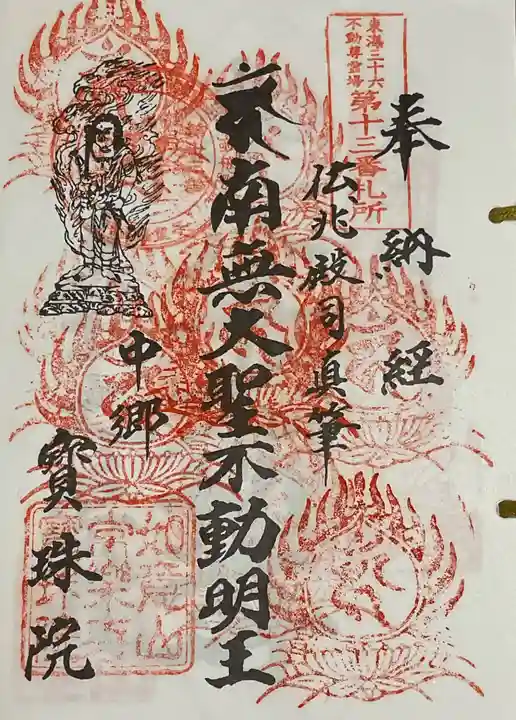 東海三十六
不動尊霊場
第十三番札所
奉納経
仏兆殿司真筆
南無大聖不動明王
中郷
寶珠院